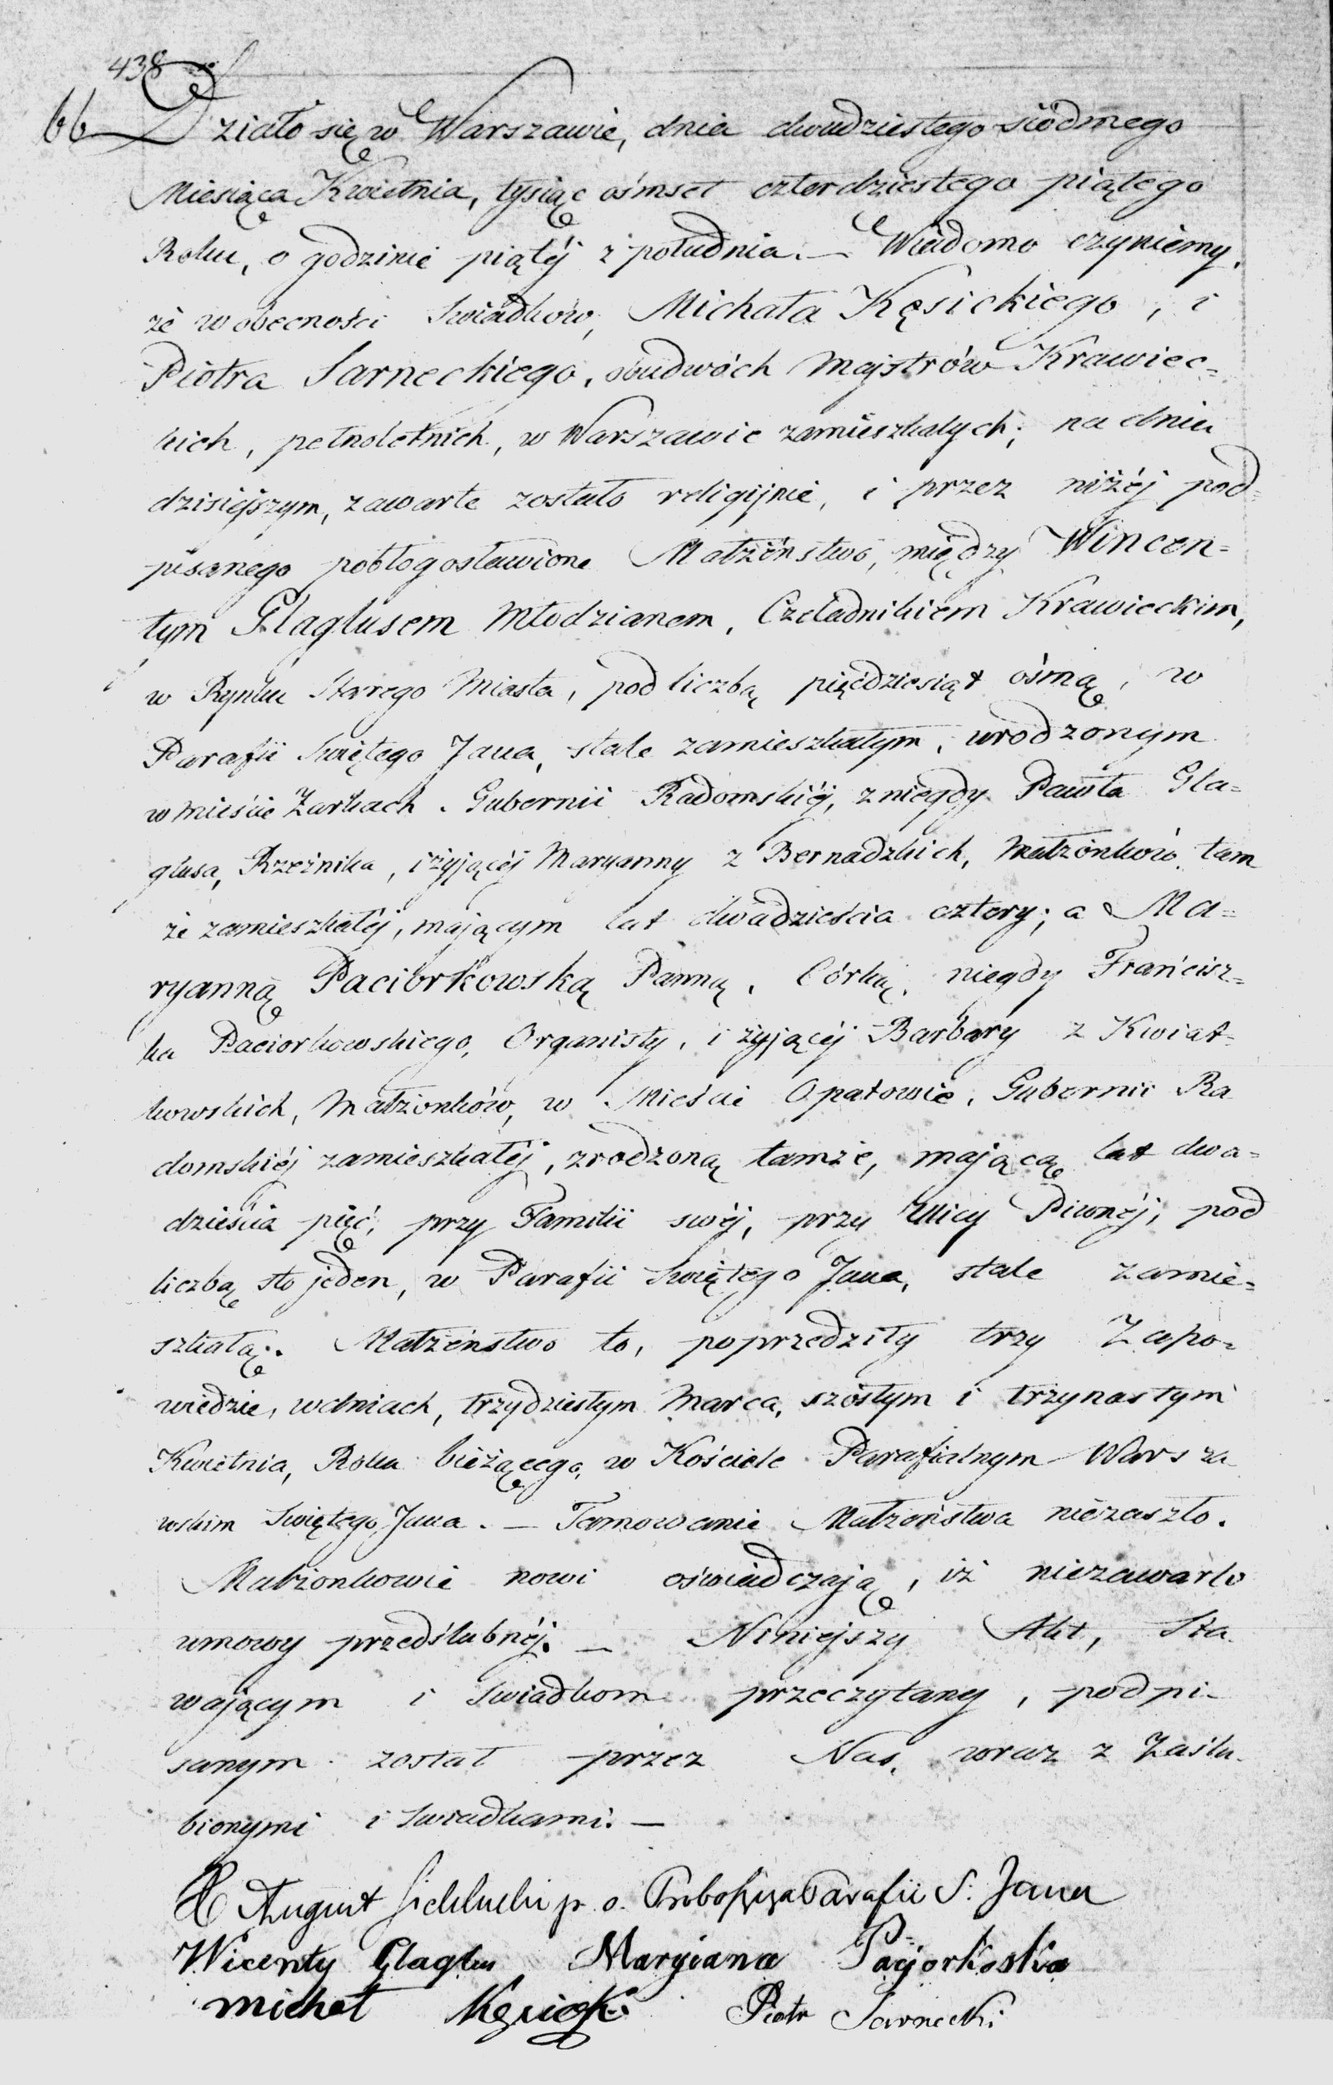 438
66 Działo się w Warszawie, dnia dwudziestego siódmego
Miesiąca Kwietnia, tysiąc ośmset czterdziestego piątego
Roku, o godzinie piątéj z południa. — Wiadomo czyniemy,
że w obecności Swiadków, Michała Kęsickiego, i
Piotra Sarneckiego, obudwóch Majstrów Krawiec-
kich, pełnoletnich, w Warszawie zamieszkałych; na dniu
dzisiejszym, zawarte zostało religijnie, i przez niżéj pod-
pisanego pobłogosławione Małżeństwo, między Wincen-
tym Glaglusem Młodzianem, Czeladnikiem Krawieckim,
w Rynku Starego Miasta, pod liczbą pięćdziesiąt ośmą, w
Parafii Swiętego Jana, stale zamieszkałym, urodzonym
w Mieście Żarkach Gubernii Radomskiéj, z niegdy Pawła Gla-
glusa, Rzeźnika, i żyjącéj Maryanny z Bernadzkich, Małżonków, tam
że zamieszkałéj, mającym lat dwadzieścia cztery; a Ma-
ryanną Paciorkowską Panną, Córką, niegdy Francisz-
ka Paciorkowskiego, Organisty, i żyjącéj Barbary z Kwiat-
kowskich, Małżonków, w Mieście Opatowie, Gubernii Ra
domskiéj zamieszkałéj, zrodzoną tamże, mającą lat dwa-
dzieścia pięć, przy Familii swéj, przy Ulicy Piwnéj, pod
liczbą sto jeden, w Parafii Swiętego Jana, stale zamie-
szkałą. Małżeństwo to, poprzedziły trzy Zapo-
wiedzie, w dniach, trzydziestym Marca, szóstym i trzynastym
Kwietnia, Roku bieżącego, w Kościele Parafialnym Warsza
wskim Swiętego Jana. — Tamowanie Małżeństwa niezaszło.
Małżonkowie nowi oświadczają, iż niezawarli
umowy przedślubnéj. — Niniejszy Akt, Sta-
wającym i Swiadkom przeczytany, podpi-
sanym został przez Nas, wraz z Zaślu-
bionymi i Swiadkami. —
X August p. o. Proboszcza Parafii S. Jana
Wicenty Glaglus Maryiana Pacjorkoska
Michał Kęsicki Piotr Sarnecki